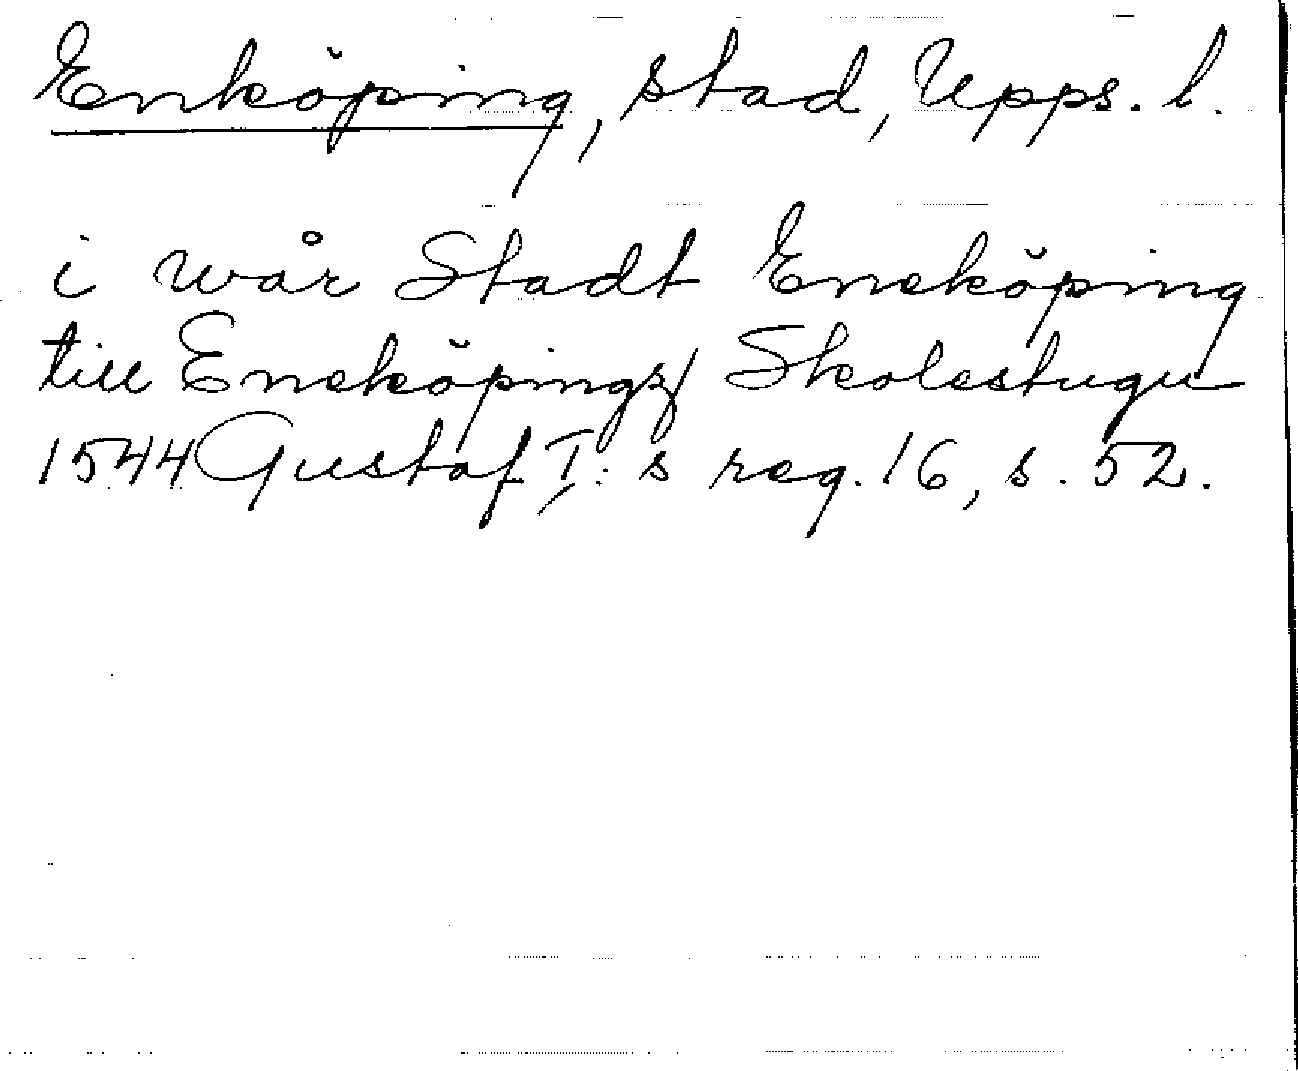 Enköping, stad, Upps. l.
i wår Stadt Eneköping
till Eneköpingz Skolestugu
1544 Gustaf I:s reg. 16, s. 52.